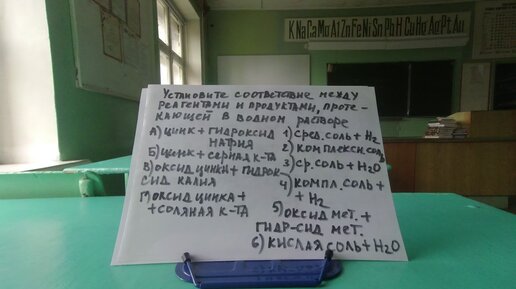 K Na Ca Mg Al Zn Fe Ni Sn Pb H Cu Hg Ag Pt Au
Установите соответствие между
реагентами и продуктами, проте-
кающей в водном растворе
А) цинк + гидроксид
натрия
Б) цинк + серная к-та
В) оксид цинка + гидрок-
сид калия
Г) оксид цинка +
+ соляная к-та
1) сред. соль + H2
2) комплексн. соль
3) ср. соль + H2O
4) компл. соль +
+ H2
5) оксид мет. +
гидр-сид мет.
6) кислая соль + H2O